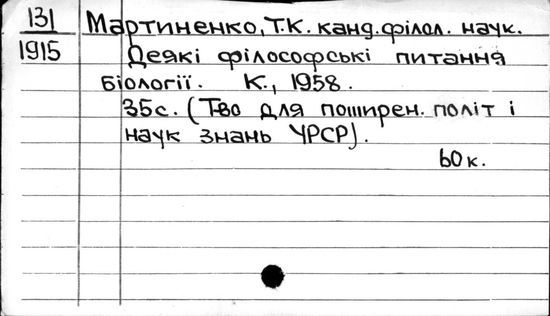 131
1915
Мартиненко, Т.К. канд. філол. наук.
Деякі філософські питання
біології. К., 1958.
35с. (Т-во для поширен. політ і
наук знань УРСР).
60к.